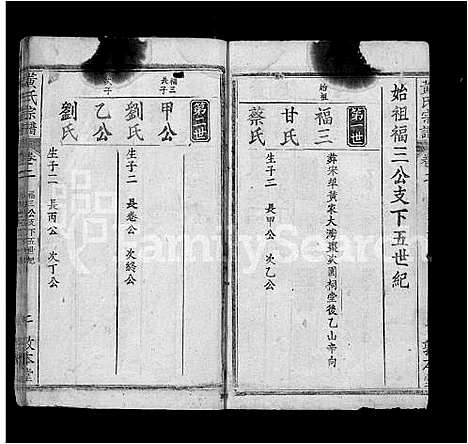 黃氏宗譜
卷二
敦本堂
始祖福三公支下五世紀
第一世
始祖
福三
甘氏
蔡氏
葬宋埠黃家大灣東炭園祠堂後乙山辛向
生子二 長甲公 次乙公
第二世
福三長子
甲公
劉氏
生子二 長卷公 次終公
次子
乙公
劉氏
生子二 長丙公 次丁公
黃氏宗譜
卷二
福三公支下五世紀
二
敦本堂
FamilySearch